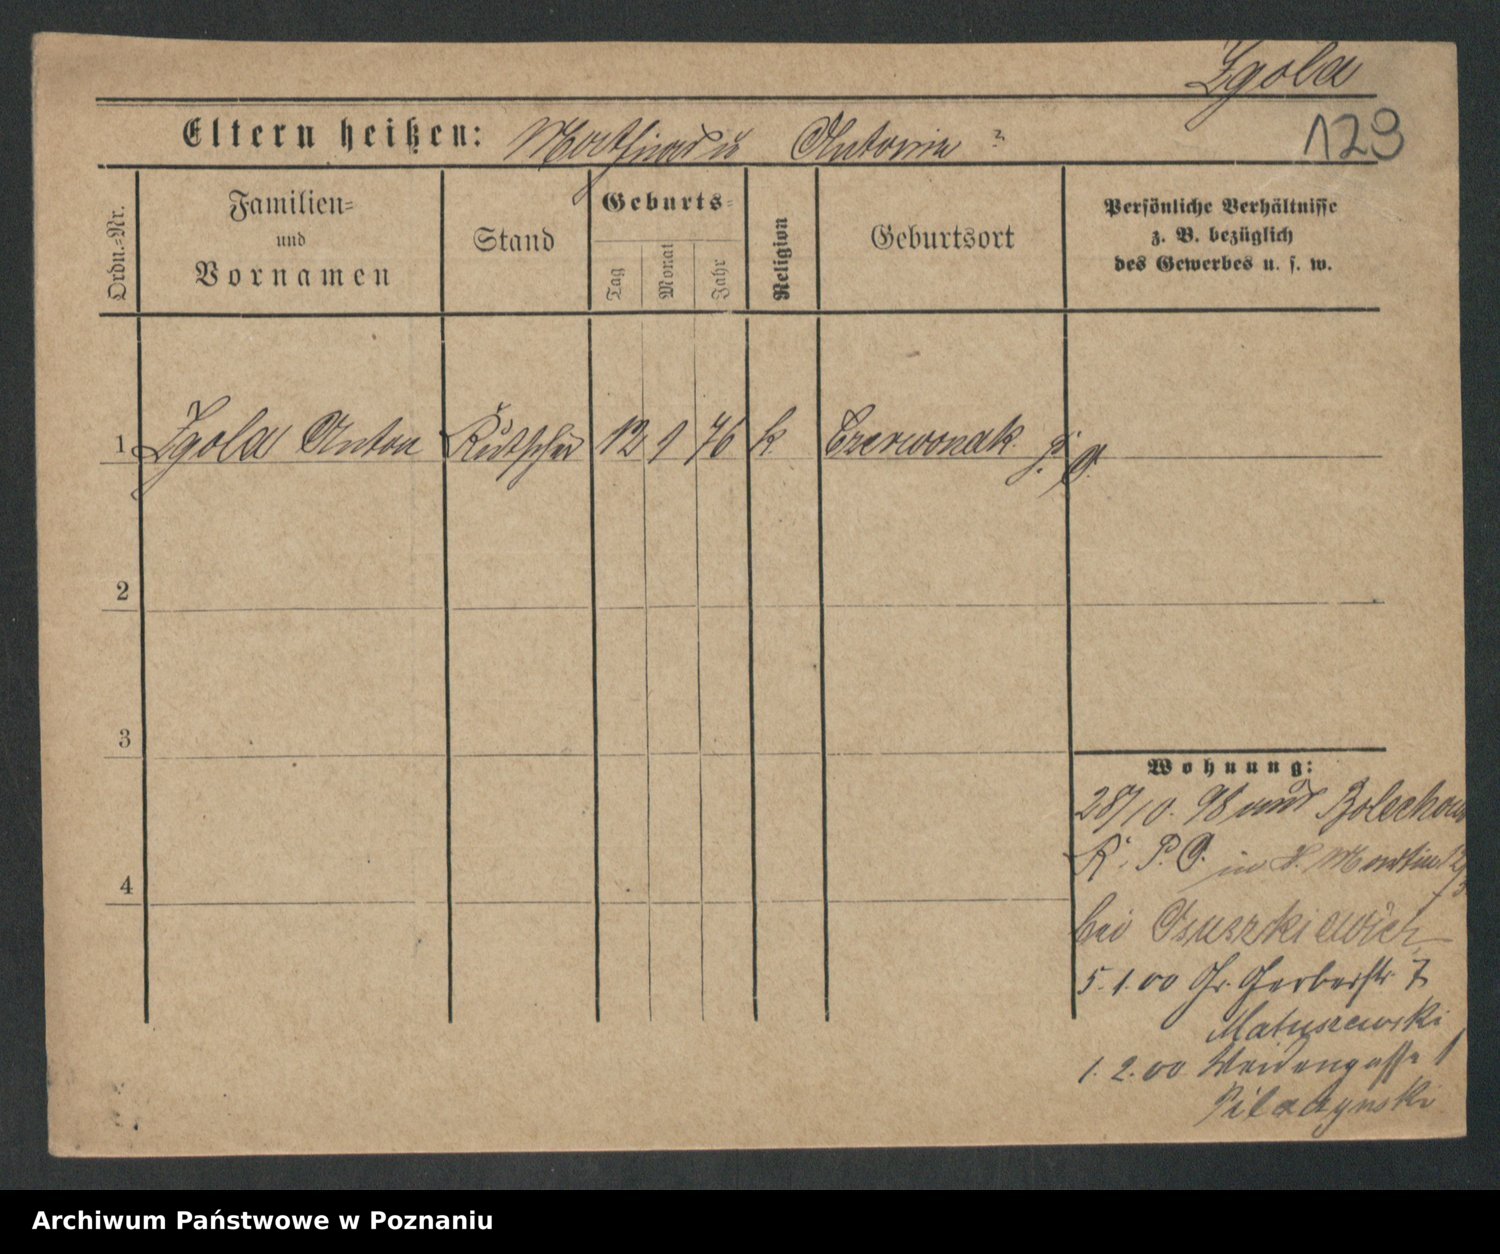 Zgola
129
Eltern heißen: Mathias u Antonia ?
Ordn.-Nr.
Familien-
und
Vornamen
Stand
Geburts-
Tag
Monat
Jahr
Religion
Geburtsort
Persönliche Verhältnisse
z. B. bezüglich
des Gewerbes u. s. w.
1 Zgola Anton Kutscher 12 1 76 k. Czerwonak P. O.
2
3
4
Wohnung:
28/10. 98 Bolechowo
K. P. O. in St. Martin
bei
5. 1. 00 Gr. Gerberstr 7
Matuszewski
1. 2. 00 Weidengasse 1
Pilaczynski
Archiwum Państwowe w Poznaniu